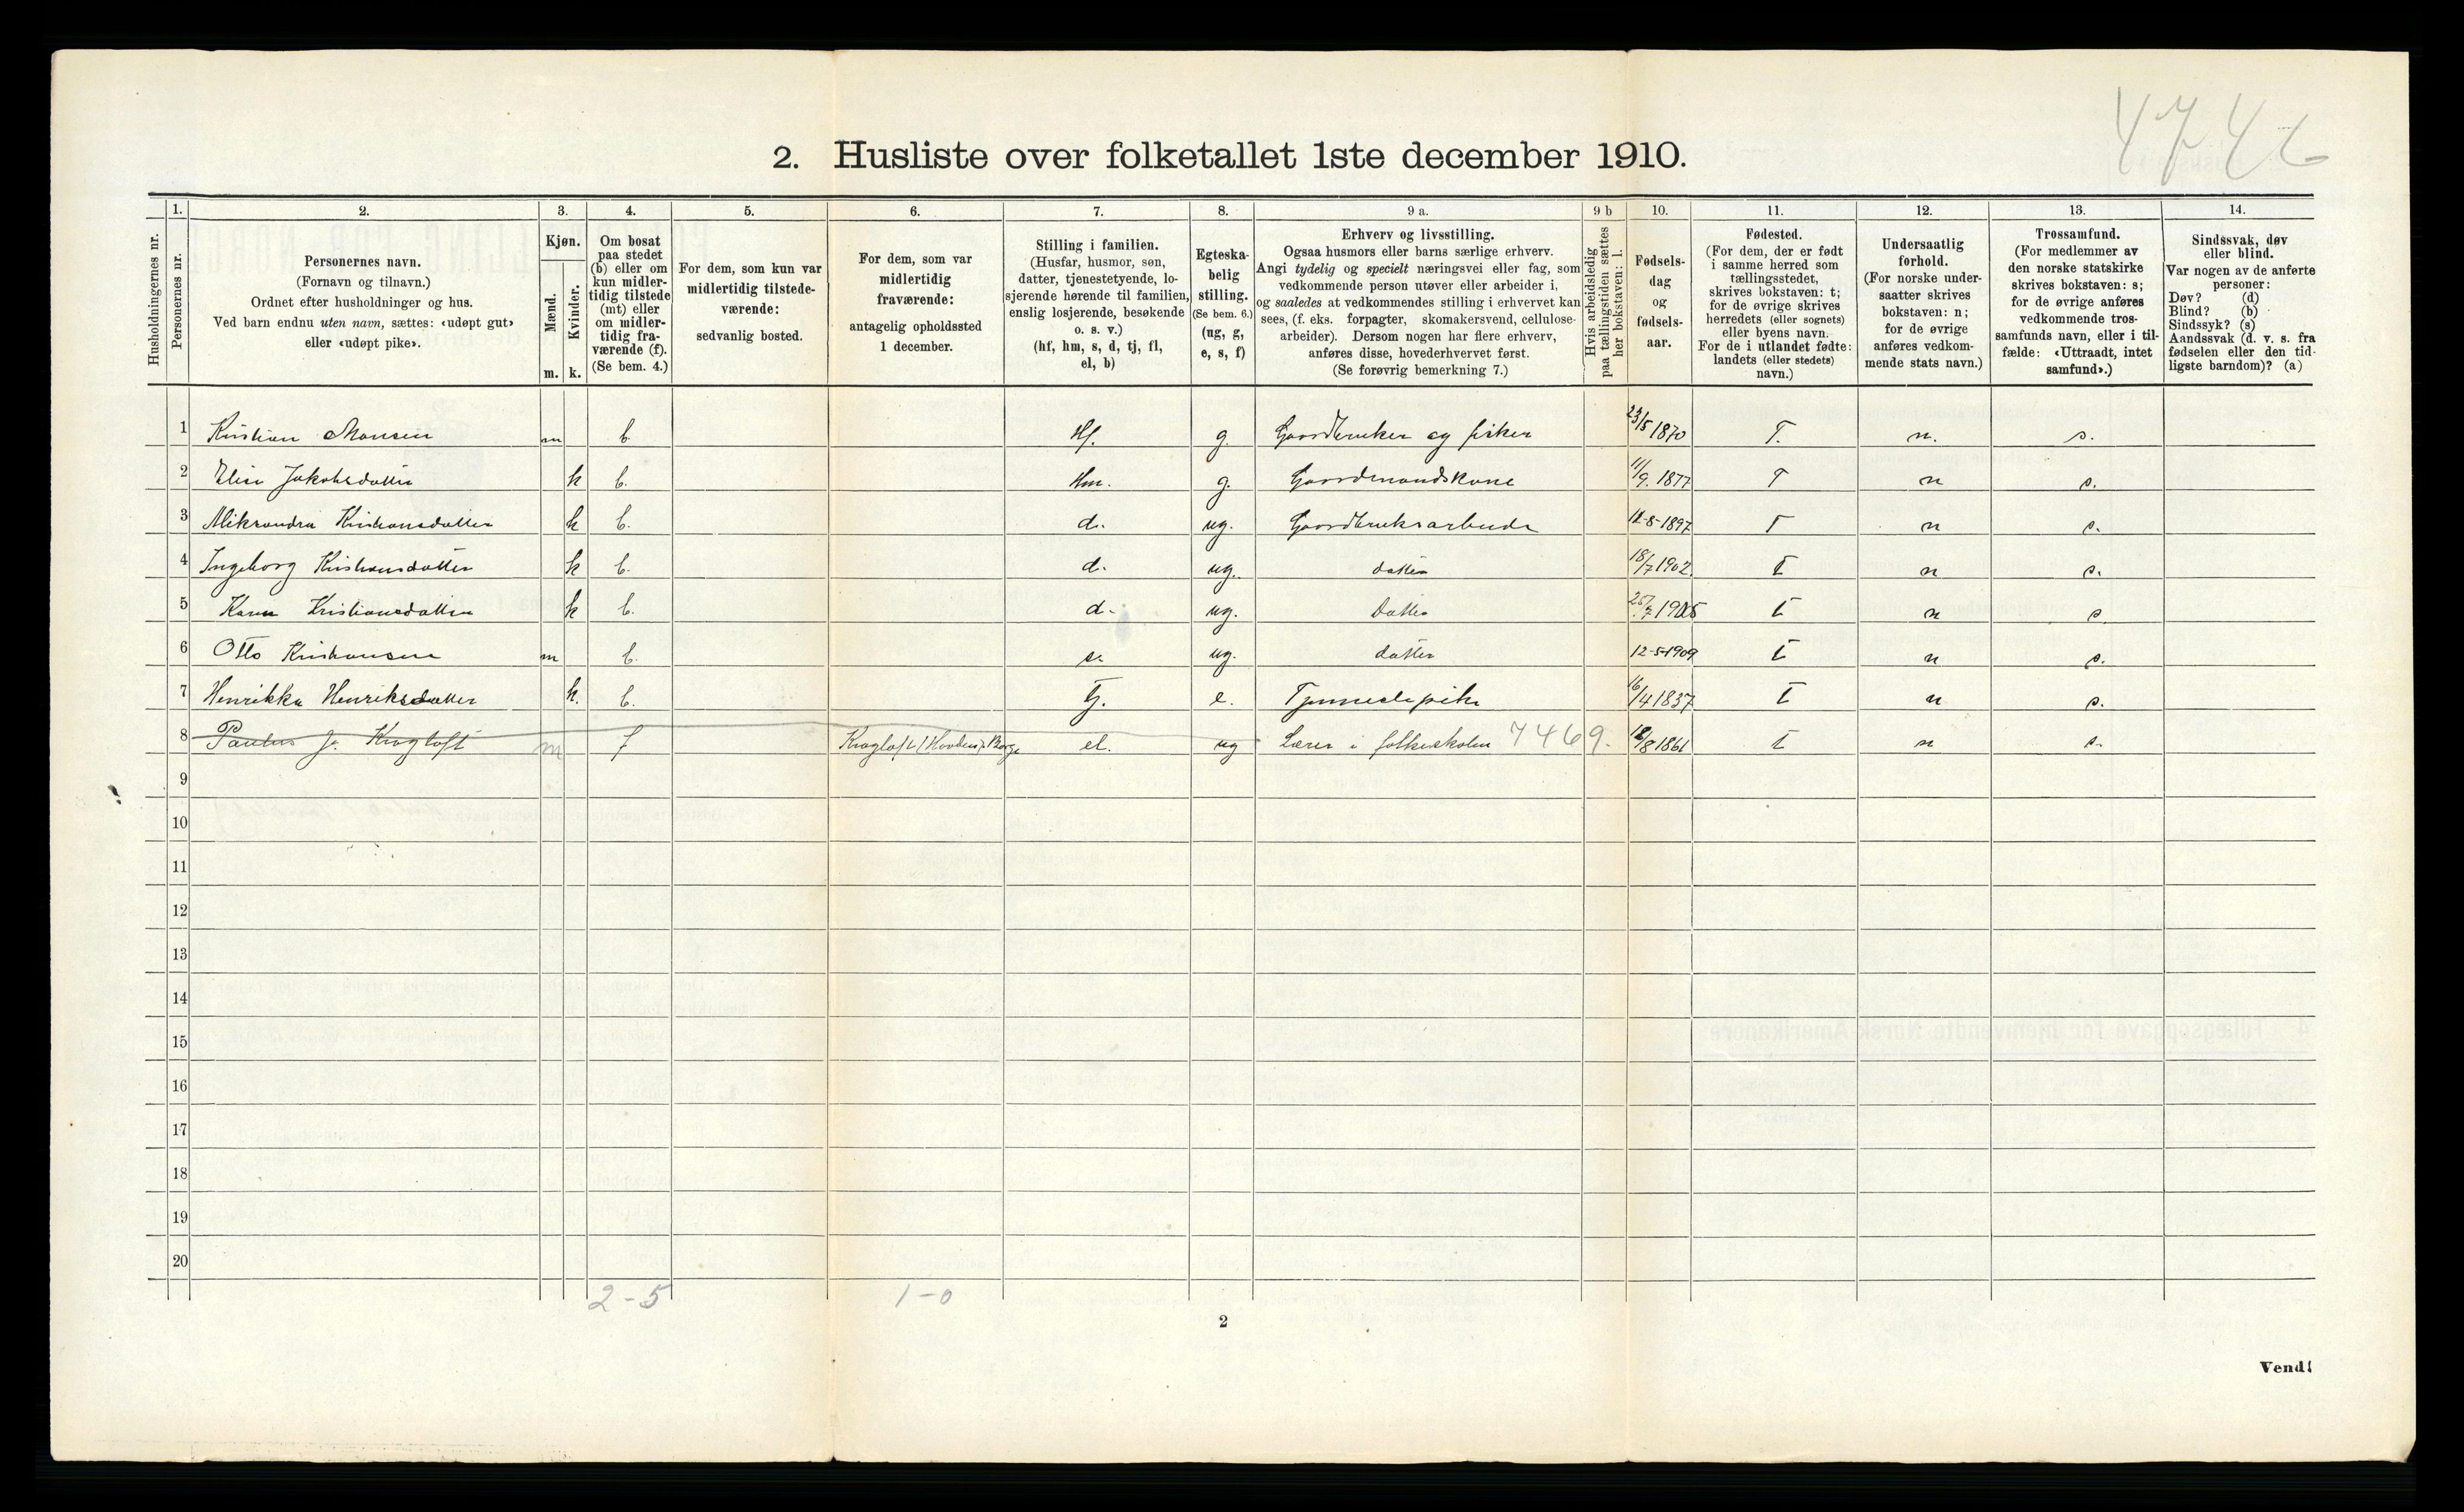 4746
2. Husliste over folketallet 1ste december 1910.
Husholdningernes nr.
1.
Personernes nr.
2.
Personernes navn.
(Fornavn og tilnavn.)
Ordnet efter husholdninger og hus.
Ved barn endnu uten navn, sættes: «udøpt gut»
eller «udøpt pike».
3.
Kjøn.
Mænd.
m.
Kvinder.
k.
4.
Om bosat
paa stedet
(b) eller om
kun midler-
tidig tilstede
(mt) eller
om midler-
tidig fra-
værende (f).
(Se bem. 4.)
5.
For dem, som kun var
midlertidig tilstede-
værende:
sedvanlig bosted.
6.
For dem, som var
midlertidig
fraværende:
antagelig opholdssted
1 december.
7.
Stilling i familien.
(Husfar, husmor, søn,
datter, tjenestetyende, lo-
sjerende hørende til familien,
enslig losjerende, besøkende
o. s. v.)
(hf, hm, s, d, tj, fl,
el, b)
8.
Egteska-
belig
stilling.
(Se bem. 6.)
(ug, g,
e, s, f)
9 a.
Erhverv og livsstilling.
Ogsaa husmors eller barns særlige erhverv.
Angi tydelig og specielt næringsvei eller fag, som
vedkommende person utøver eller arbeider i,
og saaledes at vedkommendes stilling i erhvervet kan
sees, (f. eks. forpagter, skomakersvend, cellulose-
arbeider). Dersom nogen har flere erhverv,
anføres disse, hovederhvervet først.
(Se forøvrig bemerkning 7.)
9 b
Hvis arbeidsledig
paa tællingstiden sættes
her bokstaven: l.
10.
Fødsels-
dag
og
fødsels-
aar.
11.
Fødested.
(For dem, der er født
i samme herred som
tællingsstedet,
skrives bokstaven: t;
for de øvrige skrives
herredets (eller sognets)
eller byens navn.
For de i utlandet fødte:
landets (eller stedets)
navn.)
12.
Undersaatlig
forhold.
(For norske under-
saatter skrives
bokstaven: n;
for de øvrige
anføres vedkom-
mende stats navn.)
13.
Trossamfund.
(For medlemmer av
den norske statskirke
skrives bokstaven: s;
for de øvrige anføres
vedkommende tros-
samfunds navn, eller i til-
fælde: «Uttraadt, intet
samfund».)
14.
Sindssvak, døv
eller blind.
Var nogen av de anførte
personer:
Døv? (d)
Blind? (b)
Sindssyk? (s)
Aandssvak (d. v. s. fra
fødselen eller den tid-
ligste barndom)? (a)
1 Kristian Monsen m b. Hf. g. Gaardbruker og fisker 23/5 1870 T. n. s.
2 Elise Jakobsdatter k b. Hm. g. Gaardmandskone 11/9. 1877 T n s.
3 Aleksandra Kristiansdatter k b. d. ug. Gaardbruksarbeide 12-8-1897 T n s.
4 Ingeborg Kristiansdatter k b. d. ug. datter 18/7 1902. t n s.
5 Karen Kristiansdatter k b. d. ug. Datter 25/7 1905 t n s.
6 Otto Kristiansen m b. s. ug. datter 12-5-1909 t n s.
7 Henrikka Henriksdatter k. b. Tj. e. Tjenestepike 16/4 1837 t n s.
8 Paulus J. Kragtoft m f Kragtoft (Hovden) Borge el. ug Lærer i folkeskolen 7469. 18/8 1861 t n s.
9
10
11
12
13
14
15
16
17
18
19
20
2-5 1-0
2
Vend!